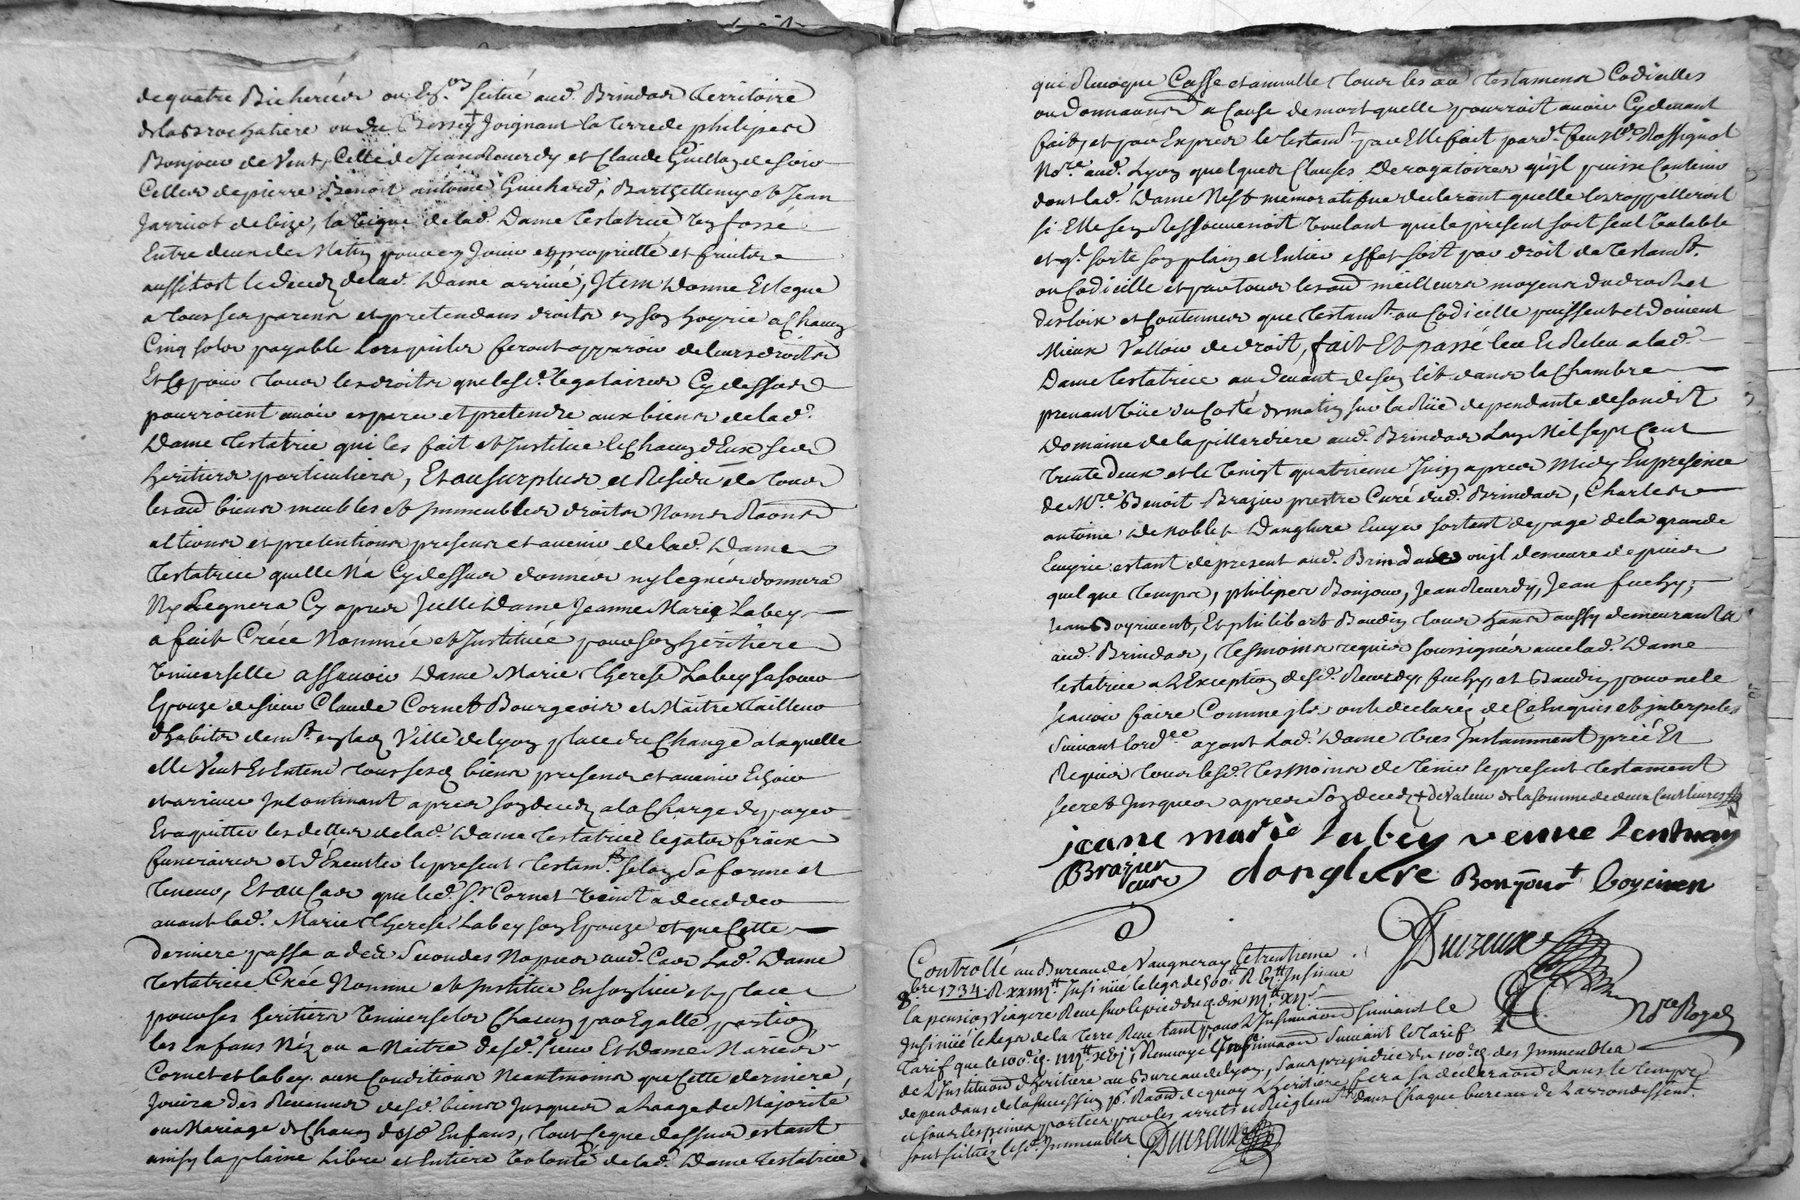 de quatre Bicherées ou Es.on scitué aud. Brindas Territoire
de la ou du Bessey Joignant la terre de philipes
Bonjour de Vent, Celle de Jean Reverdy et Claude de soir
Celles de pierre Benoit antoine Guichard, Barthellemy et Jean
Jarricot de bize, la vigne de lad. Dame testatrice
Entre deux de Matin pour en Jouir en proprietté et fruits
aussitost le decedz de lad. Dame arrivé, Item Donne Et legue
a tous ses parens et pretendans droits en son hoyrie a Chacun
Cinq solz payable Lorsquils feront apparoir de leurs droits
Et Ce pour tous les droits que lesd. legataires Cy dessus
pourroient avoir esperer et pretendre aux biens de lad.
Dame testatrice qui les fait et Institue Chacun d'Eux ses
heritiers particuliers, Et au surplus et Residu de tous
les aud biens meubles et Immeubles droits Noms Raons
actions et pretentions presens et avenir de lad. Dame
testatrice quelle N'a Cy dessus donnés ny legués donnera
Ny Legnera Cy apres Icelle Dame Jeanne Marie Labey
a fait Créée Nommée et Instituée pour son heritiere
Universelle assavoir Dame Marie Therese Labey sa soeur
Epouze de sieur Claude Cornet Bourgeois et Maitre Tailleur
d'habits dem.t en lad. Ville de Lyon place du Change a laquelle
elle Veut Et Entend tous sesd. biens presens et avenir Echoir
et arriver Incontinant apres son decedz a la Charge de payer
Et aquitter les dettes de lad. Dame testatrice legats fraix
funeraires et d'Executer le present testam.t selon sa forme et
teneur, Et au Cas que led. Sr. Cornet Vint a decedder
avant lad. Marie Therese Labey son Epouze et que Cette
derniere passa a des Secondes Nopces aud. Cas Lad. Dame
testatrice Crée Nomme et Institue En son lieu et place
pour ses heritiers Universels Chacun par Egalle portion
les Enfans Néz ou a Naitre desd. sieur Et Dame Mariés
Cornet et Labey aux Conditions Neantmoins que Cette derniere
Jouira des Revenus desd. biens Jusques a Laage de Majorité
ou Mariage de Chacun desd. Enfans, tout Ce que dessus estant
ainsy la plaine Libre et Entiere Volonté de lad. Dame testatrice
qui Revoque Casse et annulle tous les au testamens Codicilles
ou donnaons a Cause de mort quelle pourroit avoir Cy devant
faits, et par Exprés le testam.t par Elle fait pard.t feu Me Rossignol
No.re aud. Lyon quelques Clauses Derogatoires qu'il puisse Contenir
dont lad. Dame N'est memorative declarant quelle les rappelleroit
si Elle sen Ressouvenoit Voulant que le present soit seul Valable
et q.l sorte son plain et Entier effet soit par droit de testam.t
ou Codicille et par tous les aud meilleurs moyens du droit et
des loix et Coutumes que testam.t ou Codicille puissent et doivent
Mieux Valloir de droit, fait Et passé leu Et Releu a lad.
Dame testatrice au devant de son lit dans la Chambre
prenant Vüe du Costé de matin sur la Rüe dependante de son dit
Domaine de la pillardiere aud. Brindas Lan Mil sept Cent
trente deux et le Vingt quatrieme Juin apres Midy En presence
de M.re Benoit Brazier prestre Curé dud. Brindas, Charles
antoine de Noblet Danglure Ecuyer sortant de page de la grande
Ecuyrie estant de present aud. Brindas ou il demeure depuis
quelque temps, philipes Bonjour, Jean Reverdy, Jean fuchy,
Jean Boyrivent, Et philibert Baudin tous Gand aussy demeurant a
aud. Brindas, tesmoins requis soussignés avec lad. Dame
testatrice a l'Exception desd. Reverdy, fuchy et Baudin pour ne le
scavoir faire Comme ils ont declaré de Ce Enquis et interpelés
suivant lord.ce ayant Lad. Dame tres Instamment prié Et
Requis tous lesd. tesmoins de tenir le present testament
secret Jusques apres son decedz + de Valeur de la somme de deux Cent livres
jeane marie labey veuve
Brazier curé danglure Bonjour boyriven
Duizeux
Nore Royal
Controllé au Bureau de Vaugneray le trentieme
8bre 1734. R. xxiiij.tt Insinüé le legs de 500.tt R. Insinué
la pension Viagere Reçeu sur le pied du
Insinüé le legs de la terre Reçeu tant pour L'Insinuaon suivant le
tarif que le 100.e Renvoyé L'Insinuaon suivant le tarif
de L'Instituaon d'heritiere au Bureau de Lyon, sans prejudice du 100.e d. des Immeubles
dependans de la succession p.r Raon de quoy L'heritiere fera sa declaraon dans le temps
et sous les peines portées par les arrets et Reglem.ts dans Chaque bureau de L'arrondissem.t
sont scitués lesd. Immeubles. Duizeux